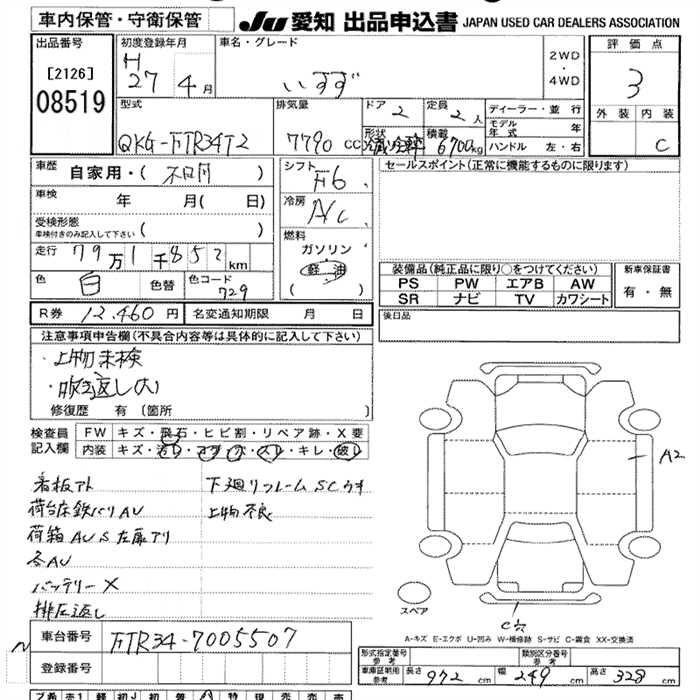 車内保管・守衛保管 JU 愛知 出品申込書 JAPAN USED CAR DEALERS ASSOCIATION
出品番号 初度登録年月 車名・グレード 2WD ・ 4WD 評価点
[2126] H 27 4月 いすず 3
08519
型式 排気量 ドア 2 定員 2人 ディーラー・並行 外装 内装
QKG-FTR34T2 7790 cc 形状 積載 6700kg モデル年式 年 C
ハンドル 左・右
車歴 自家用・( ) シフト F6 セールスポイント(正常に機能するものに限ります)
車検 年 月( 日) 冷房 A/C
受検形態 ( )
車検付きのみ記入して下さい
燃料
走行 79万1千852km ガソリン
軽油
( )
色 白 色替 色コード 729
装備品(純正品に限り○をつけてください) 新車保証書
PS PW エアB AW 有・無
SR ナビ TV カワシート
R券 12,460円 名変通知期限 月 日 後日品
注意事項申告欄(不具合内容等は具体的に記入して下さい)
・上物未検
・
修復歴 有 (箇所 )
検査員 FW キズ・飛石・ヒビ割・リペア跡・X要
記入欄 内装 キズ・汚レ・コゲ・穴・スレ・キレ・破レ
A2
看板アト 下廻リフレームSCウキ
荷台床鉄バリAU 上物不良
荷箱AUS左扉アリ
各AU
バッテリーX
スペア
C穴
A-キズ E-エクボ U-凹み W-補修跡 S-サビ C-腐食 XX-交換済
車台番号 FTR34-7005507
登録番号
形式指定番号 参考 類別区分番号 参考
車庫証明用 参考 長さ 972 cm 幅 249 cm 高さ 328 cm